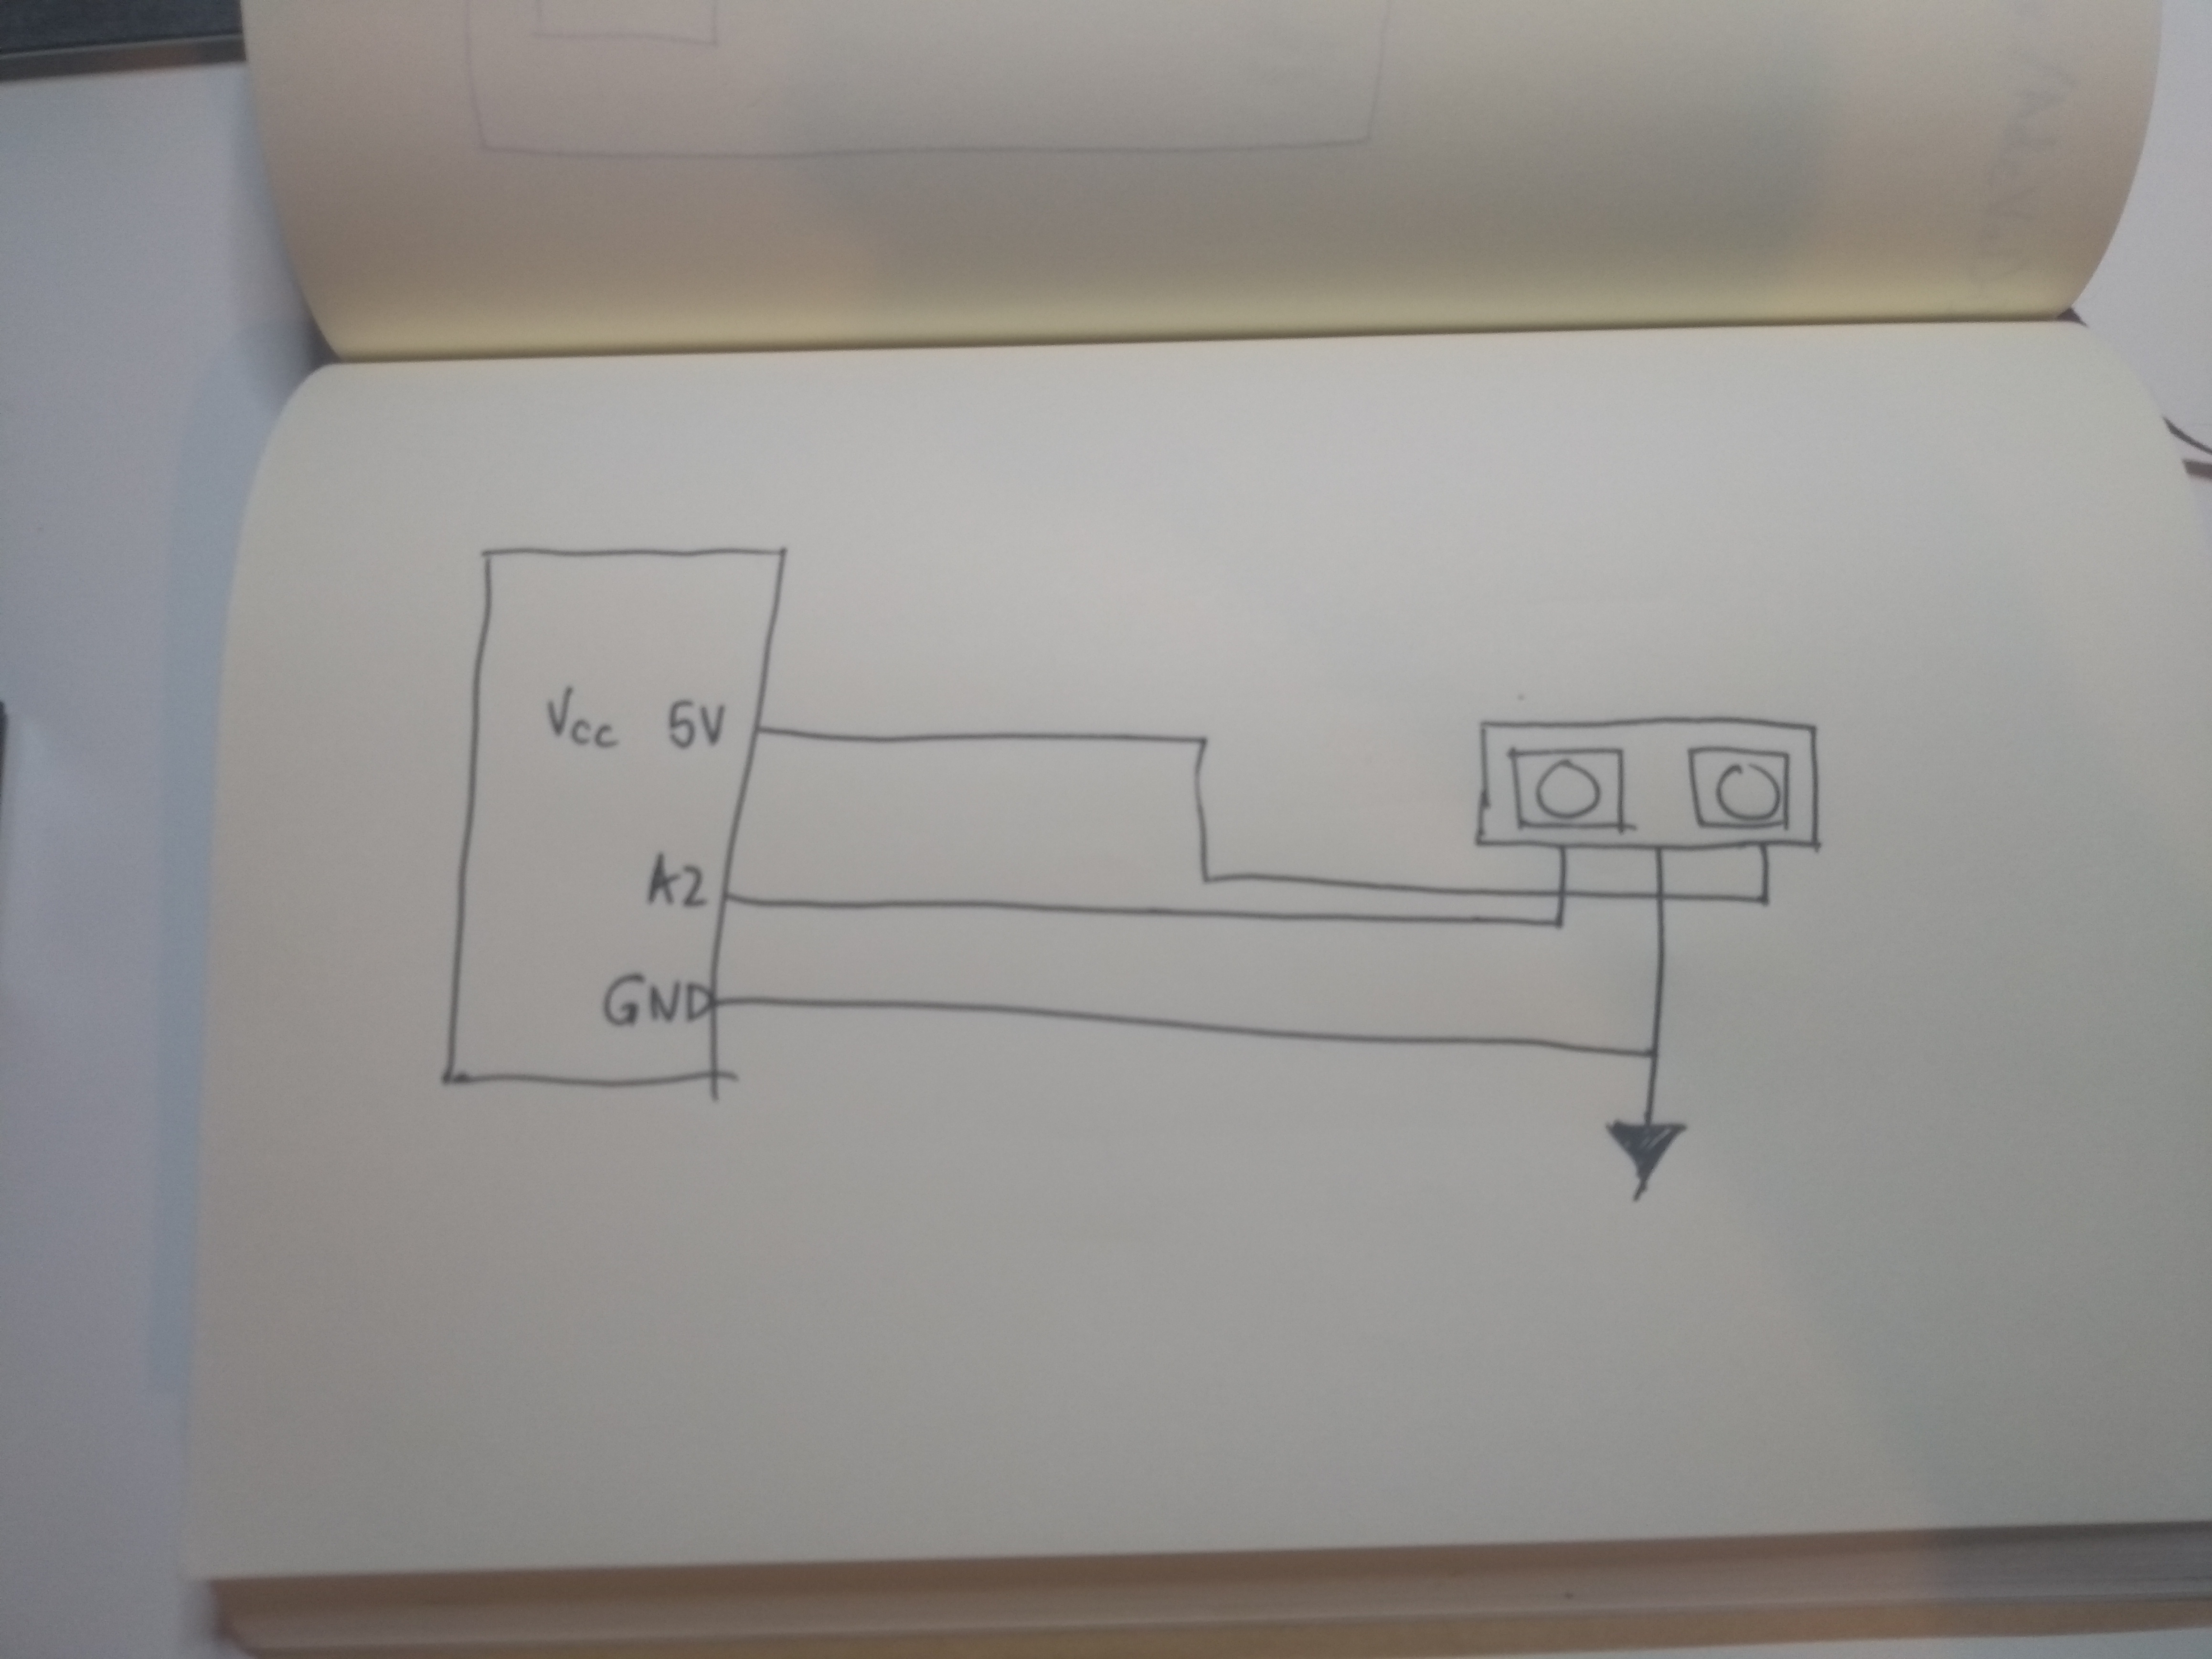 Vcc 5V
A2
GND